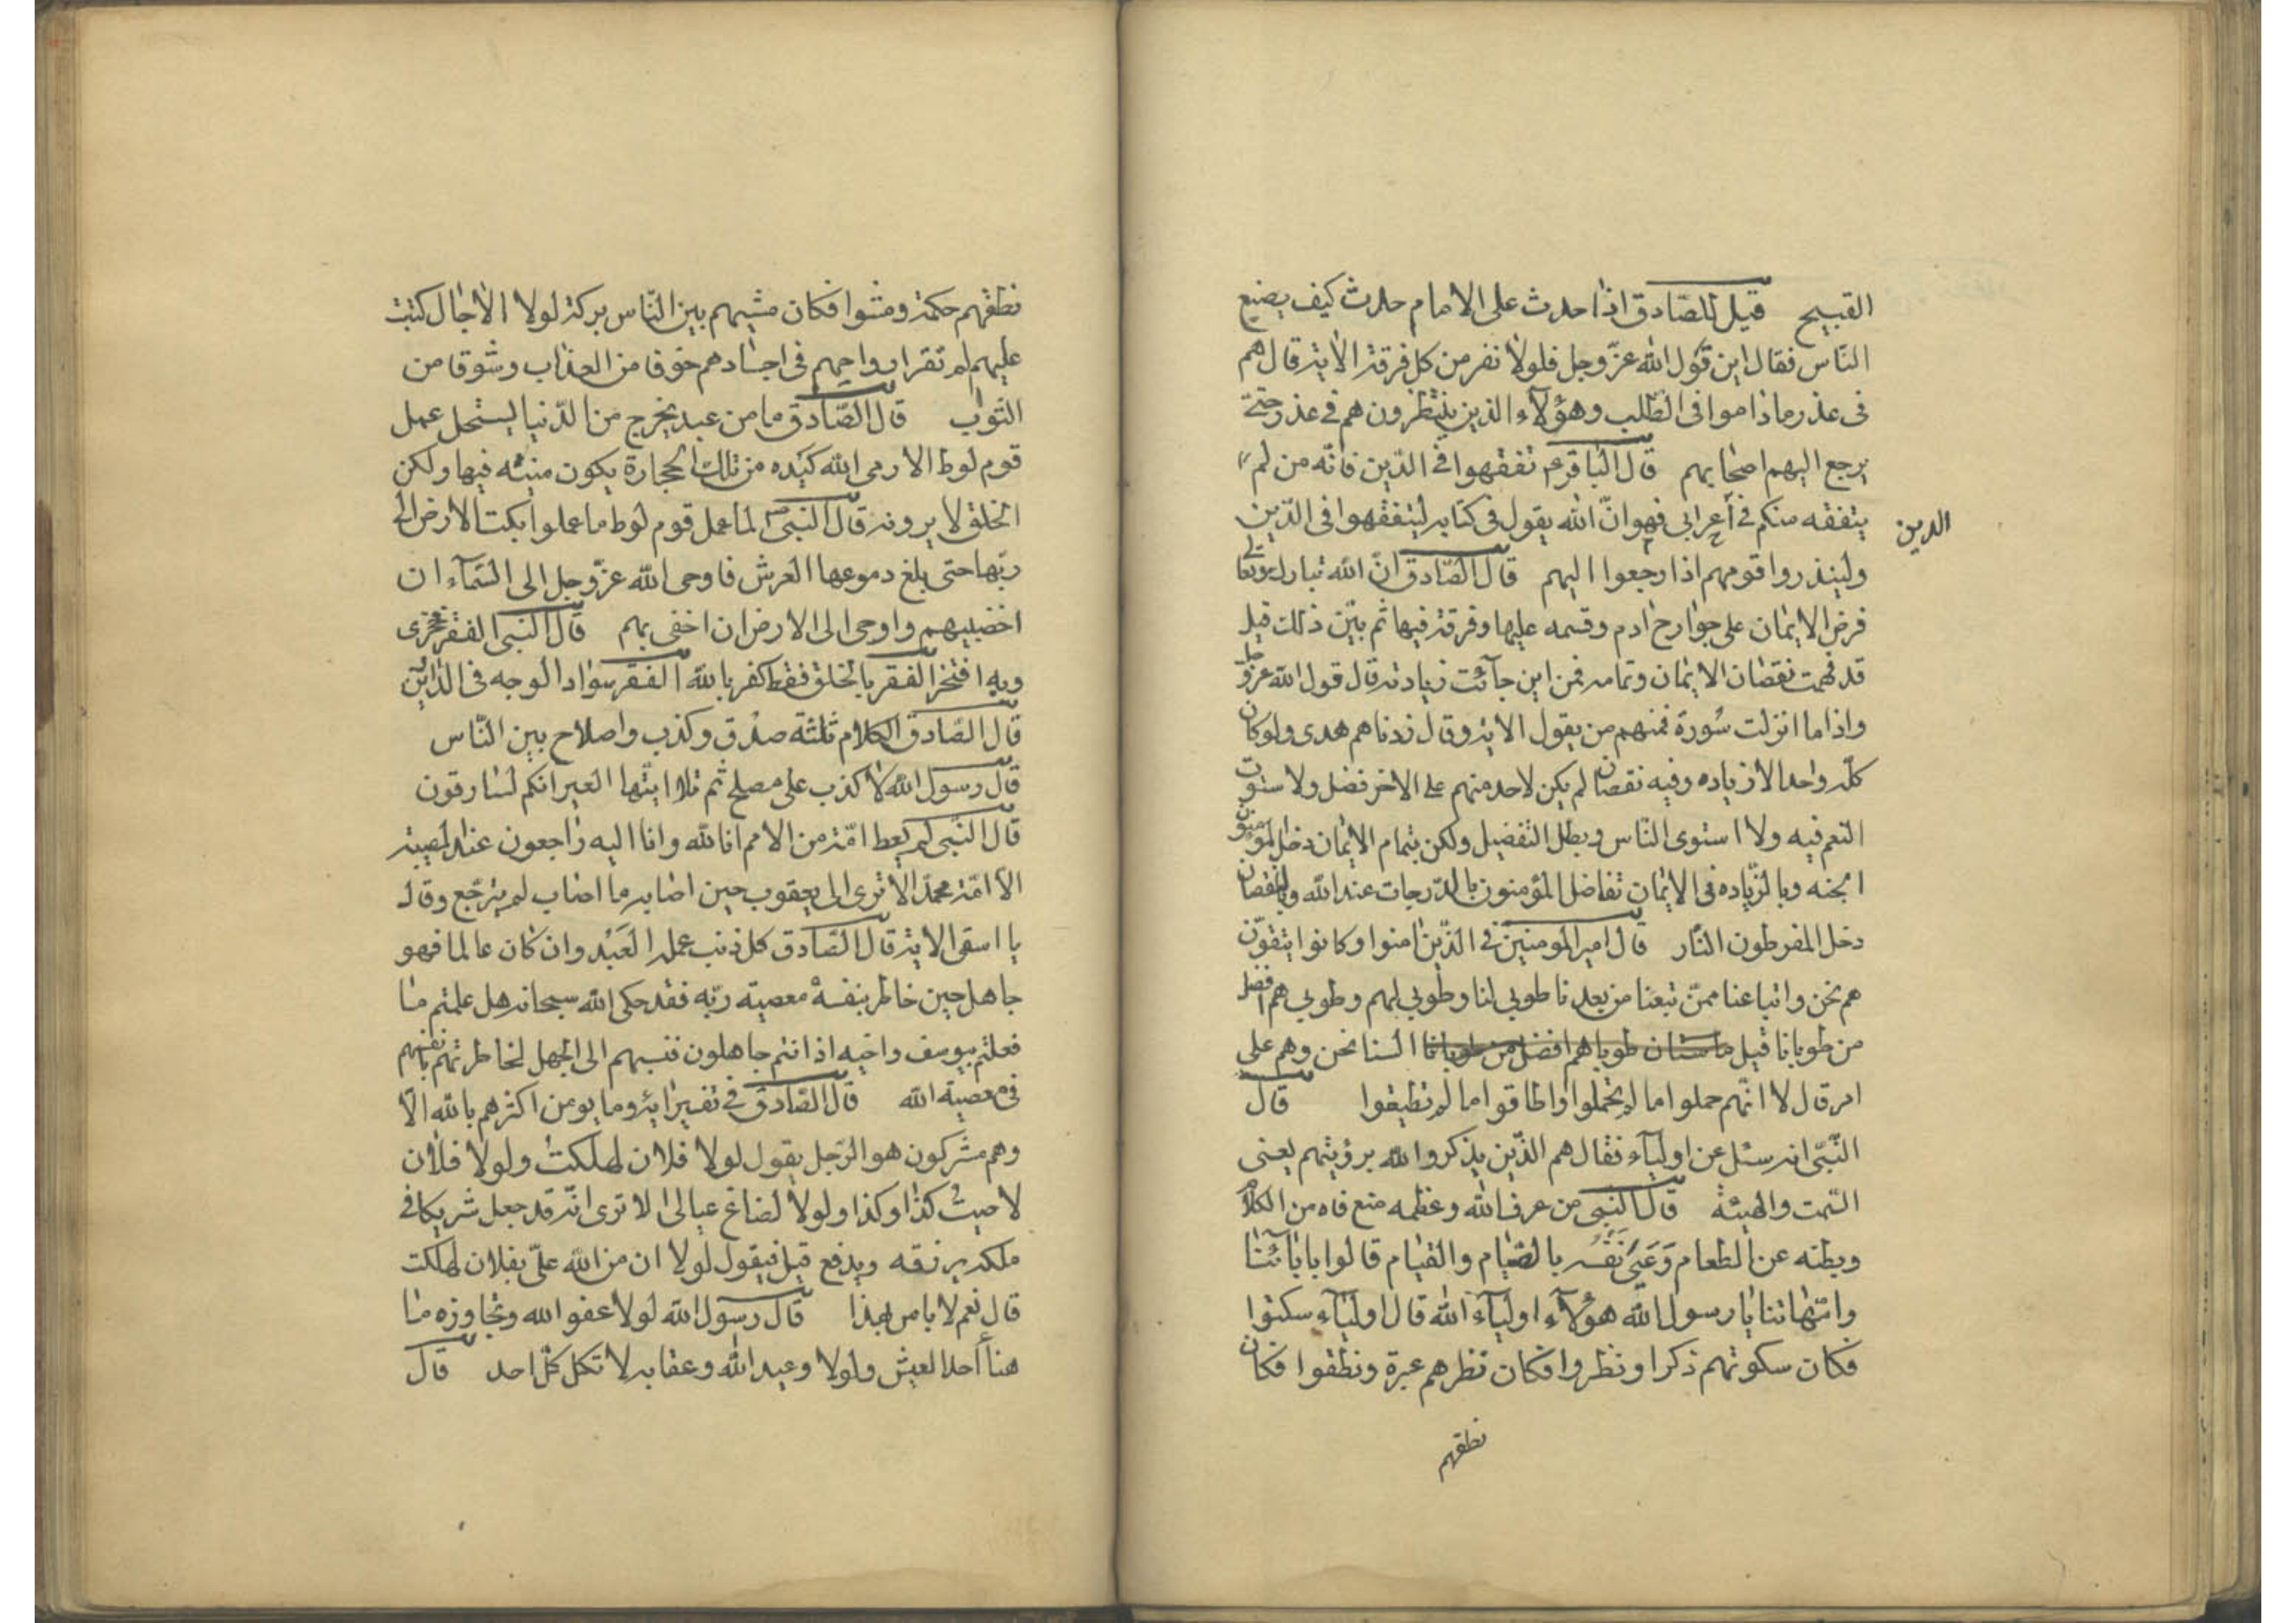 القبيح قيل للصّادق اذا حدث على الامام حدث كيف يصنع
النّاس فقال اين قول الله عزّ وجل فلولا نفر من كل فرقة الاية قال هم
فى عذر ماذاموا فى الطّلب وهؤلآء الذين ينتظرون هم فى عذر حتىّ
يرجع اليهم اصحابهم قال الباقر ع تفقهوا فى الدّين فانّه من لم
يتفقه منكم فى الدين اعرابى فهو انّ الله يقول فى كتابه ليتفقهوا فى الدّين
ولينذروا قومهم اذا رجعوا اليهم قال الصّادق انّ الله تبارك وتعالى
فرض الايمان على جوارح ادم وقسمه عليها وفرقة فيها ثم بيّن ذلك قيل
قد فهمت نقصان الايمان وتمامه فمن اين جآئت زيادته قال قول الله عزّ وجل
واذا ما انزلت سُورة فمنهم من يقول الاية وقال زدناهم هدى ولو كان
كلّه واحدا لا زياده وفيه نقصان لم يكن لاحد منهم على الاخر فضل ولا ستوت
النعم فيه ولا استوى النّاس وبطل التفضيل ولكن بتمام الايمان دخل المؤمنون
الجنه وبالزّياده فى الايمان تفاضل المؤمنون بالدّرجات عند الله وبالنقصان
دخل المفرطون النّار قال امير المومنين فى الذّين امنوا وكانوا يتقون
هم نحن واتباعنا ممّن تبعنا من بعدنا طوبى لنا وطوبى لهم وطوبى هم افضل
من طوبانا قيل ما شان طوباهم افضل من طوبانا السنا نحن وهم على
امر قال لا انّهم حملوا ما لم تحملوا واطاقوا ما لم تطيقوا قال
النّبّى انه سئل عن اوليآء فقال هم الذّين يذكروا لله برؤيتهم يعنى
السّمت والهيئة قال النبى من عرف الله وعظمه منع فاه من الكلام
وبطنه عن الطعام وَعَنىَ نَفْسَه بالصّيام والقيام قالوا بابآئنا
وامّهاتنا يا رسول الله هؤلآء اوليآء الله قال اوليآء سكتوا
فكان سكوتهم ذكرا ونظروا فكان نظرهم عبرة ونطقوا فكان
نطقهم
نطقهم حكمة ومشوا فكان مشيهم بين النّاس بركة لولا الاجال كتبت
عليهم لم تقر ارواحهم فى اجسادهم خوفا من العذاب وشوقا من
الثواب قال الصّادق ما من عبد يخرج من الدّنيا يستحل عمل
قوم لوط الا رمى الله كبده من تلك الحجارة يكون منيته فيها ولكن
الخلق لا يرونه قال النبىّ ص لما عمل قوم لوط ما عملوا بكت الارض الى
ربّها حتى بلغ دموعها العرش فاوحى الله عزّ وجل الى السّمآء ان
اخضبيهم واوحى الى الارض ان اخفى بهم قال النبى الفقر فخرى
وبه افتخر الفقر بالخلق فقط كفر بالله الفقر سواد الوجه فى الدّارين
قال الصّادق الكلام ثلثة صدق وكذب واصلاح بين النّاس
قال رسول الله لا كذب على مصلح ثم تلا ايّتها العير انكم لسارقون
قال النبى لم يعط امّة من الامم انا لله وانا اليه راجعون عند المصيبة
الا امّة محمّد الا ترى الى يعقوب حين اصابه ما اصاب لم يترجّع وقال
يا اسفى الاية قال الصّادق كل ذنب عمله العَبْد وان كان عالما فهو
جاهل حين خاطر بنفسه معصيته ربّه فقد حكى الله سبحانه هل علمتم ما
فعلتم بيوسف واخيه اذ انتم جاهلون فنسبهم الى الجهل لخاطرتهم بانفسهم
فى معصية الله قال الصّادق فى تفسير اية وما يومن اكثرهم بالله الّا
وهم مشركون هو الرّجل يقول لولا فلان لهلكت ولولا فلان
لا صبت كذا وكذا ولولا لضاع عيالى الا ترى انّه قد جعل شريكا فى
ملكه يرزقه ويدفع قيل فيقول لولا ان من الله علىّ بفلان لهلكت
قال نعم لا باس بهذا قال رسول الله لولا عفو الله وتجاوزه ما
هنأ احدا لعيش ولولا وعيد الله وعقابه لا تكل كلّ احد قال